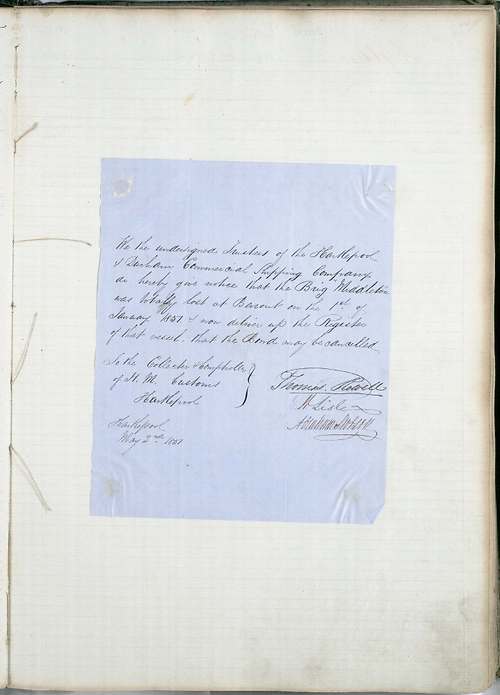 We the undersigned Trustees of the Hartlepool
& Durham Commercial Shipping Company
do hereby give notice that the Brig Middleton
was totally lost at Beirout on the 1st of
January 1851 & now deliver up the Register
of that vessel, that the Bond may be cancelled
To the Collector & Comptroller
of H. M. Customs
Hartlepool
Thomas Rowell
W Lisle
Abraham
Hartlepool
May 2nd 1851